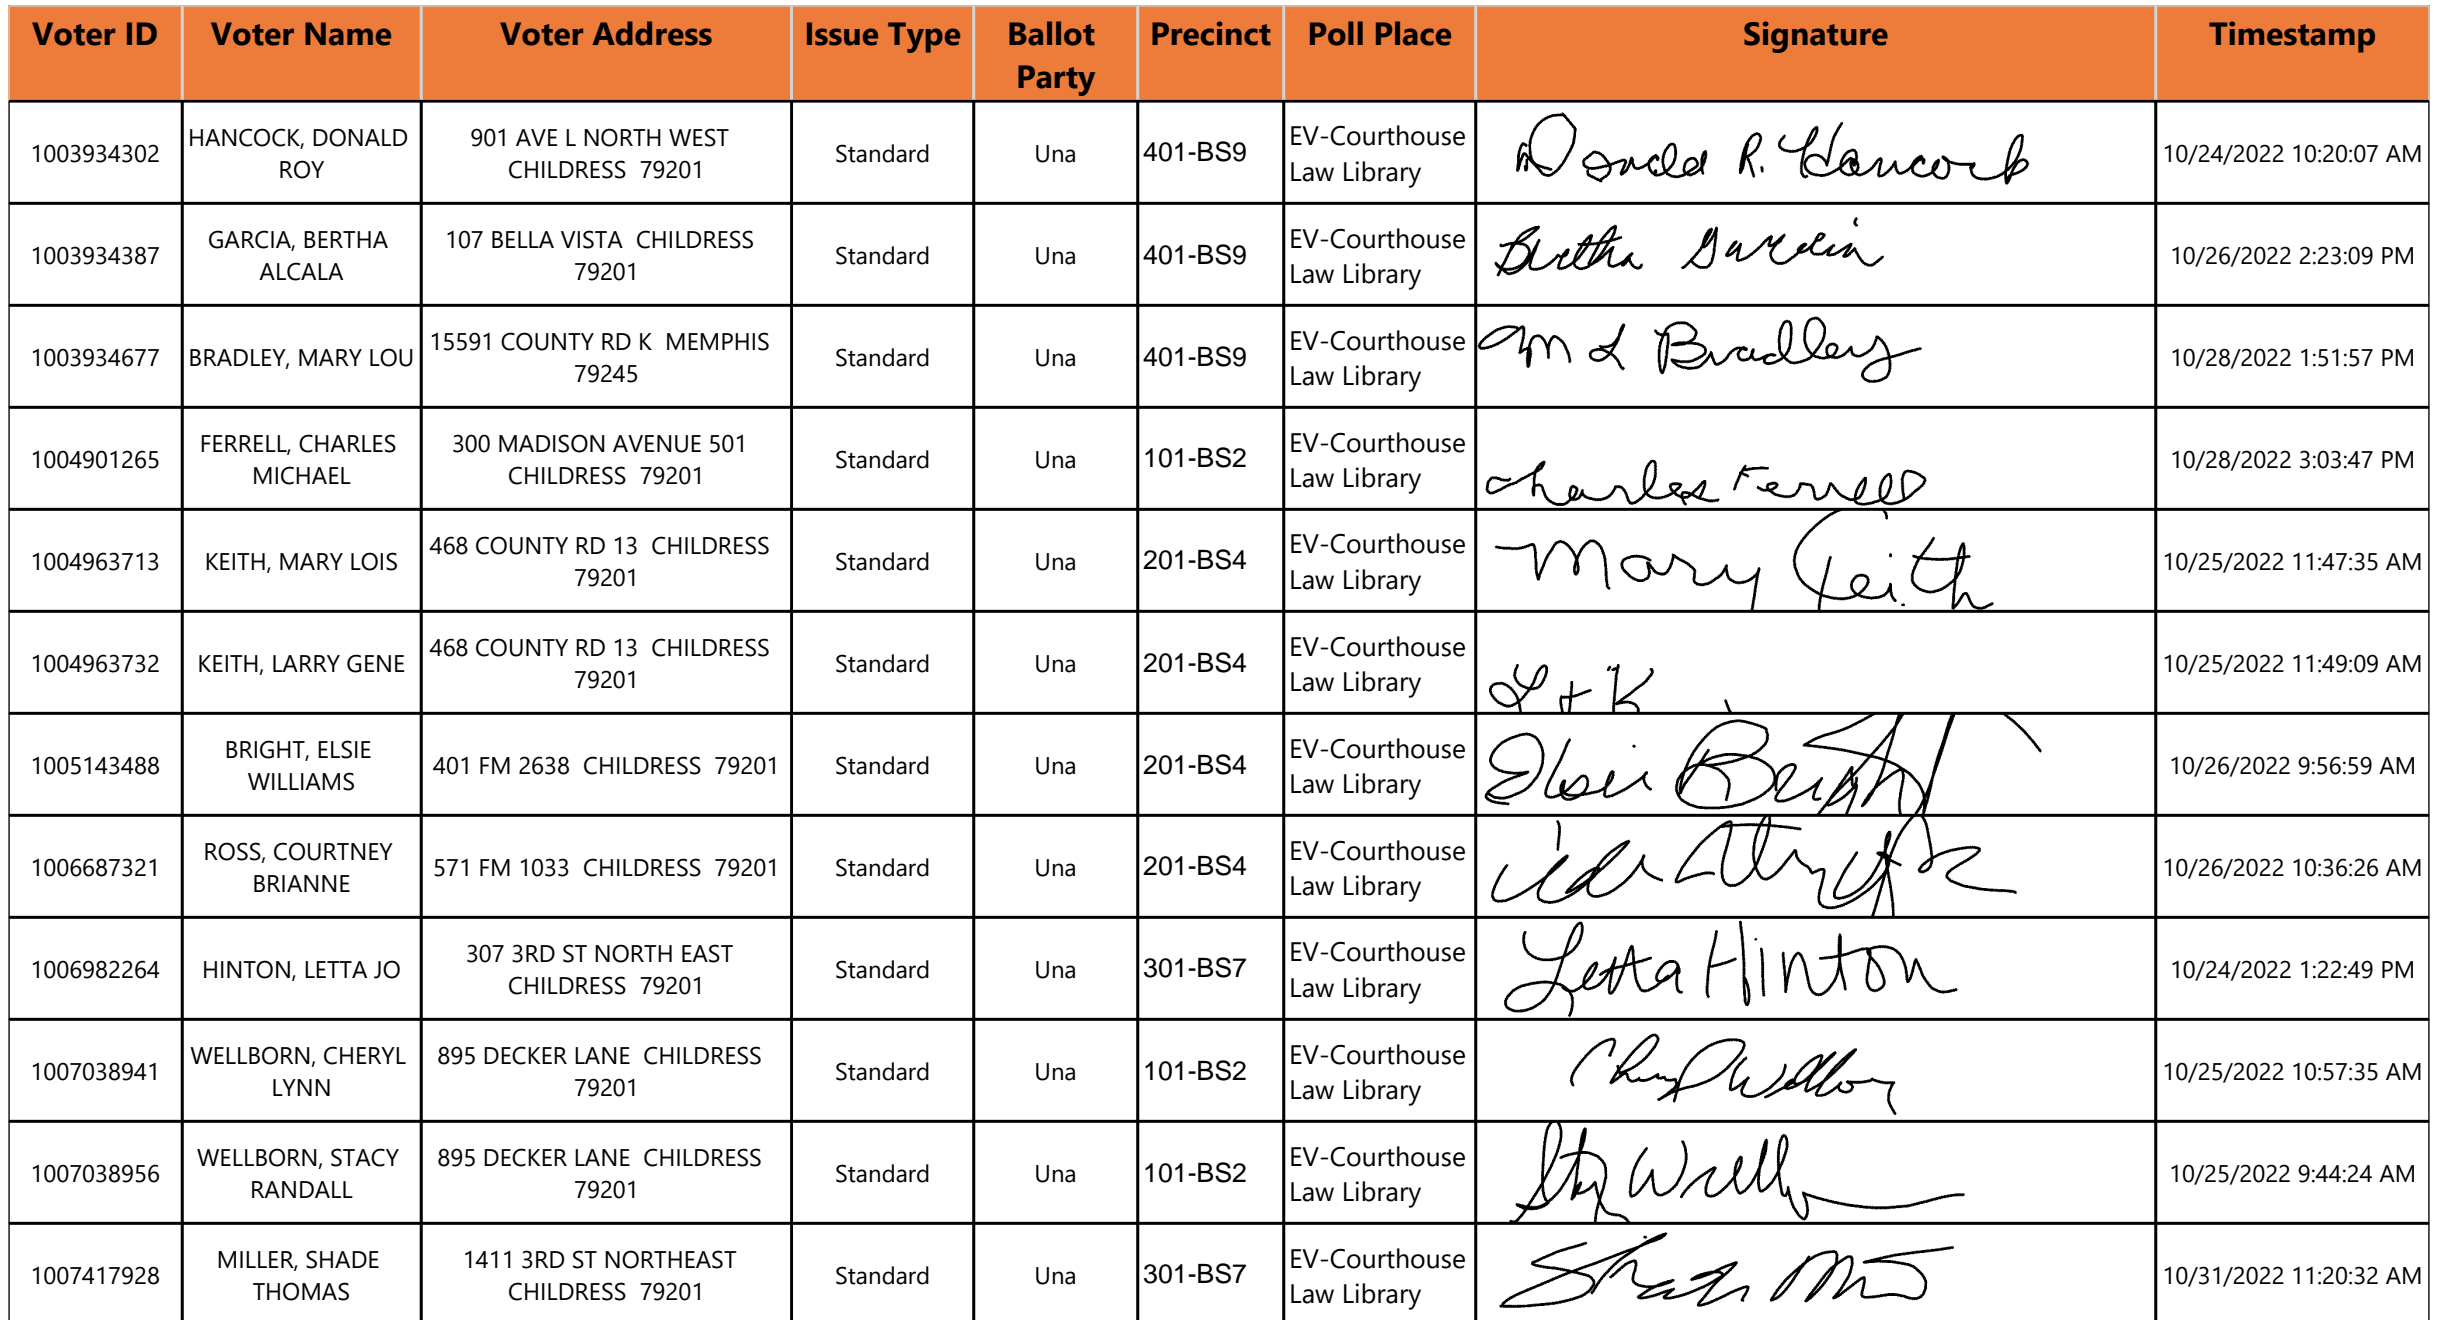 Voter ID Voter Name Voter Address Issue Type Ballot Party Precinct Poll Place Signature Timestamp
1003934302 HANCOCK, DONALD ROY 901 AVE L NORTH WEST CHILDRESS 79201 Standard Una 401-BS9 EV-Courthouse Law Library Donald R. Hancock 10/24/2022 10:20:07 AM
1003934387 GARCIA, BERTHA ALCALA 107 BELLA VISTA CHILDRESS 79201 Standard Una 401-BS9 EV-Courthouse Law Library Bertha Garcia 10/26/2022 2:23:09 PM
1003934677 BRADLEY, MARY LOU 15591 COUNTY RD K MEMPHIS 79245 Standard Una 401-BS9 EV-Courthouse Law Library M L Bradley 10/28/2022 1:51:57 PM
1004901265 FERRELL, CHARLES MICHAEL 300 MADISON AVENUE 501 CHILDRESS 79201 Standard Una 101-BS2 EV-Courthouse Law Library Charles Ferrell 10/28/2022 3:03:47 PM
1004963713 KEITH, MARY LOIS 468 COUNTY RD 13 CHILDRESS 79201 Standard Una 201-BS4 EV-Courthouse Law Library Mary Keith 10/25/2022 11:47:35 AM
1004963732 KEITH, LARRY GENE 468 COUNTY RD 13 CHILDRESS 79201 Standard Una 201-BS4 EV-Courthouse Law Library 10/25/2022 11:49:09 AM
1005143488 BRIGHT, ELSIE WILLIAMS 401 FM 2638 CHILDRESS 79201 Standard Una 201-BS4 EV-Courthouse Law Library Elsie Bright 10/26/2022 9:56:59 AM
1006687321 ROSS, COURTNEY BRIANNE 571 FM 1033 CHILDRESS 79201 Standard Una 201-BS4 EV-Courthouse Law Library 10/26/2022 10:36:26 AM
1006982264 HINTON, LETTA JO 307 3RD ST NORTH EAST CHILDRESS 79201 Standard Una 301-BS7 EV-Courthouse Law Library Letta Hinton 10/24/2022 1:22:49 PM
1007038941 WELLBORN, CHERYL LYNN 895 DECKER LANE CHILDRESS 79201 Standard Una 101-BS2 EV-Courthouse Law Library 10/25/2022 10:57:35 AM
1007038956 WELLBORN, STACY RANDALL 895 DECKER LANE CHILDRESS 79201 Standard Una 101-BS2 EV-Courthouse Law Library 10/25/2022 9:44:24 AM
1007417928 MILLER, SHADE THOMAS 1411 3RD ST NORTHEAST CHILDRESS 79201 Standard Una 301-BS7 EV-Courthouse Law Library 10/31/2022 11:20:32 AM